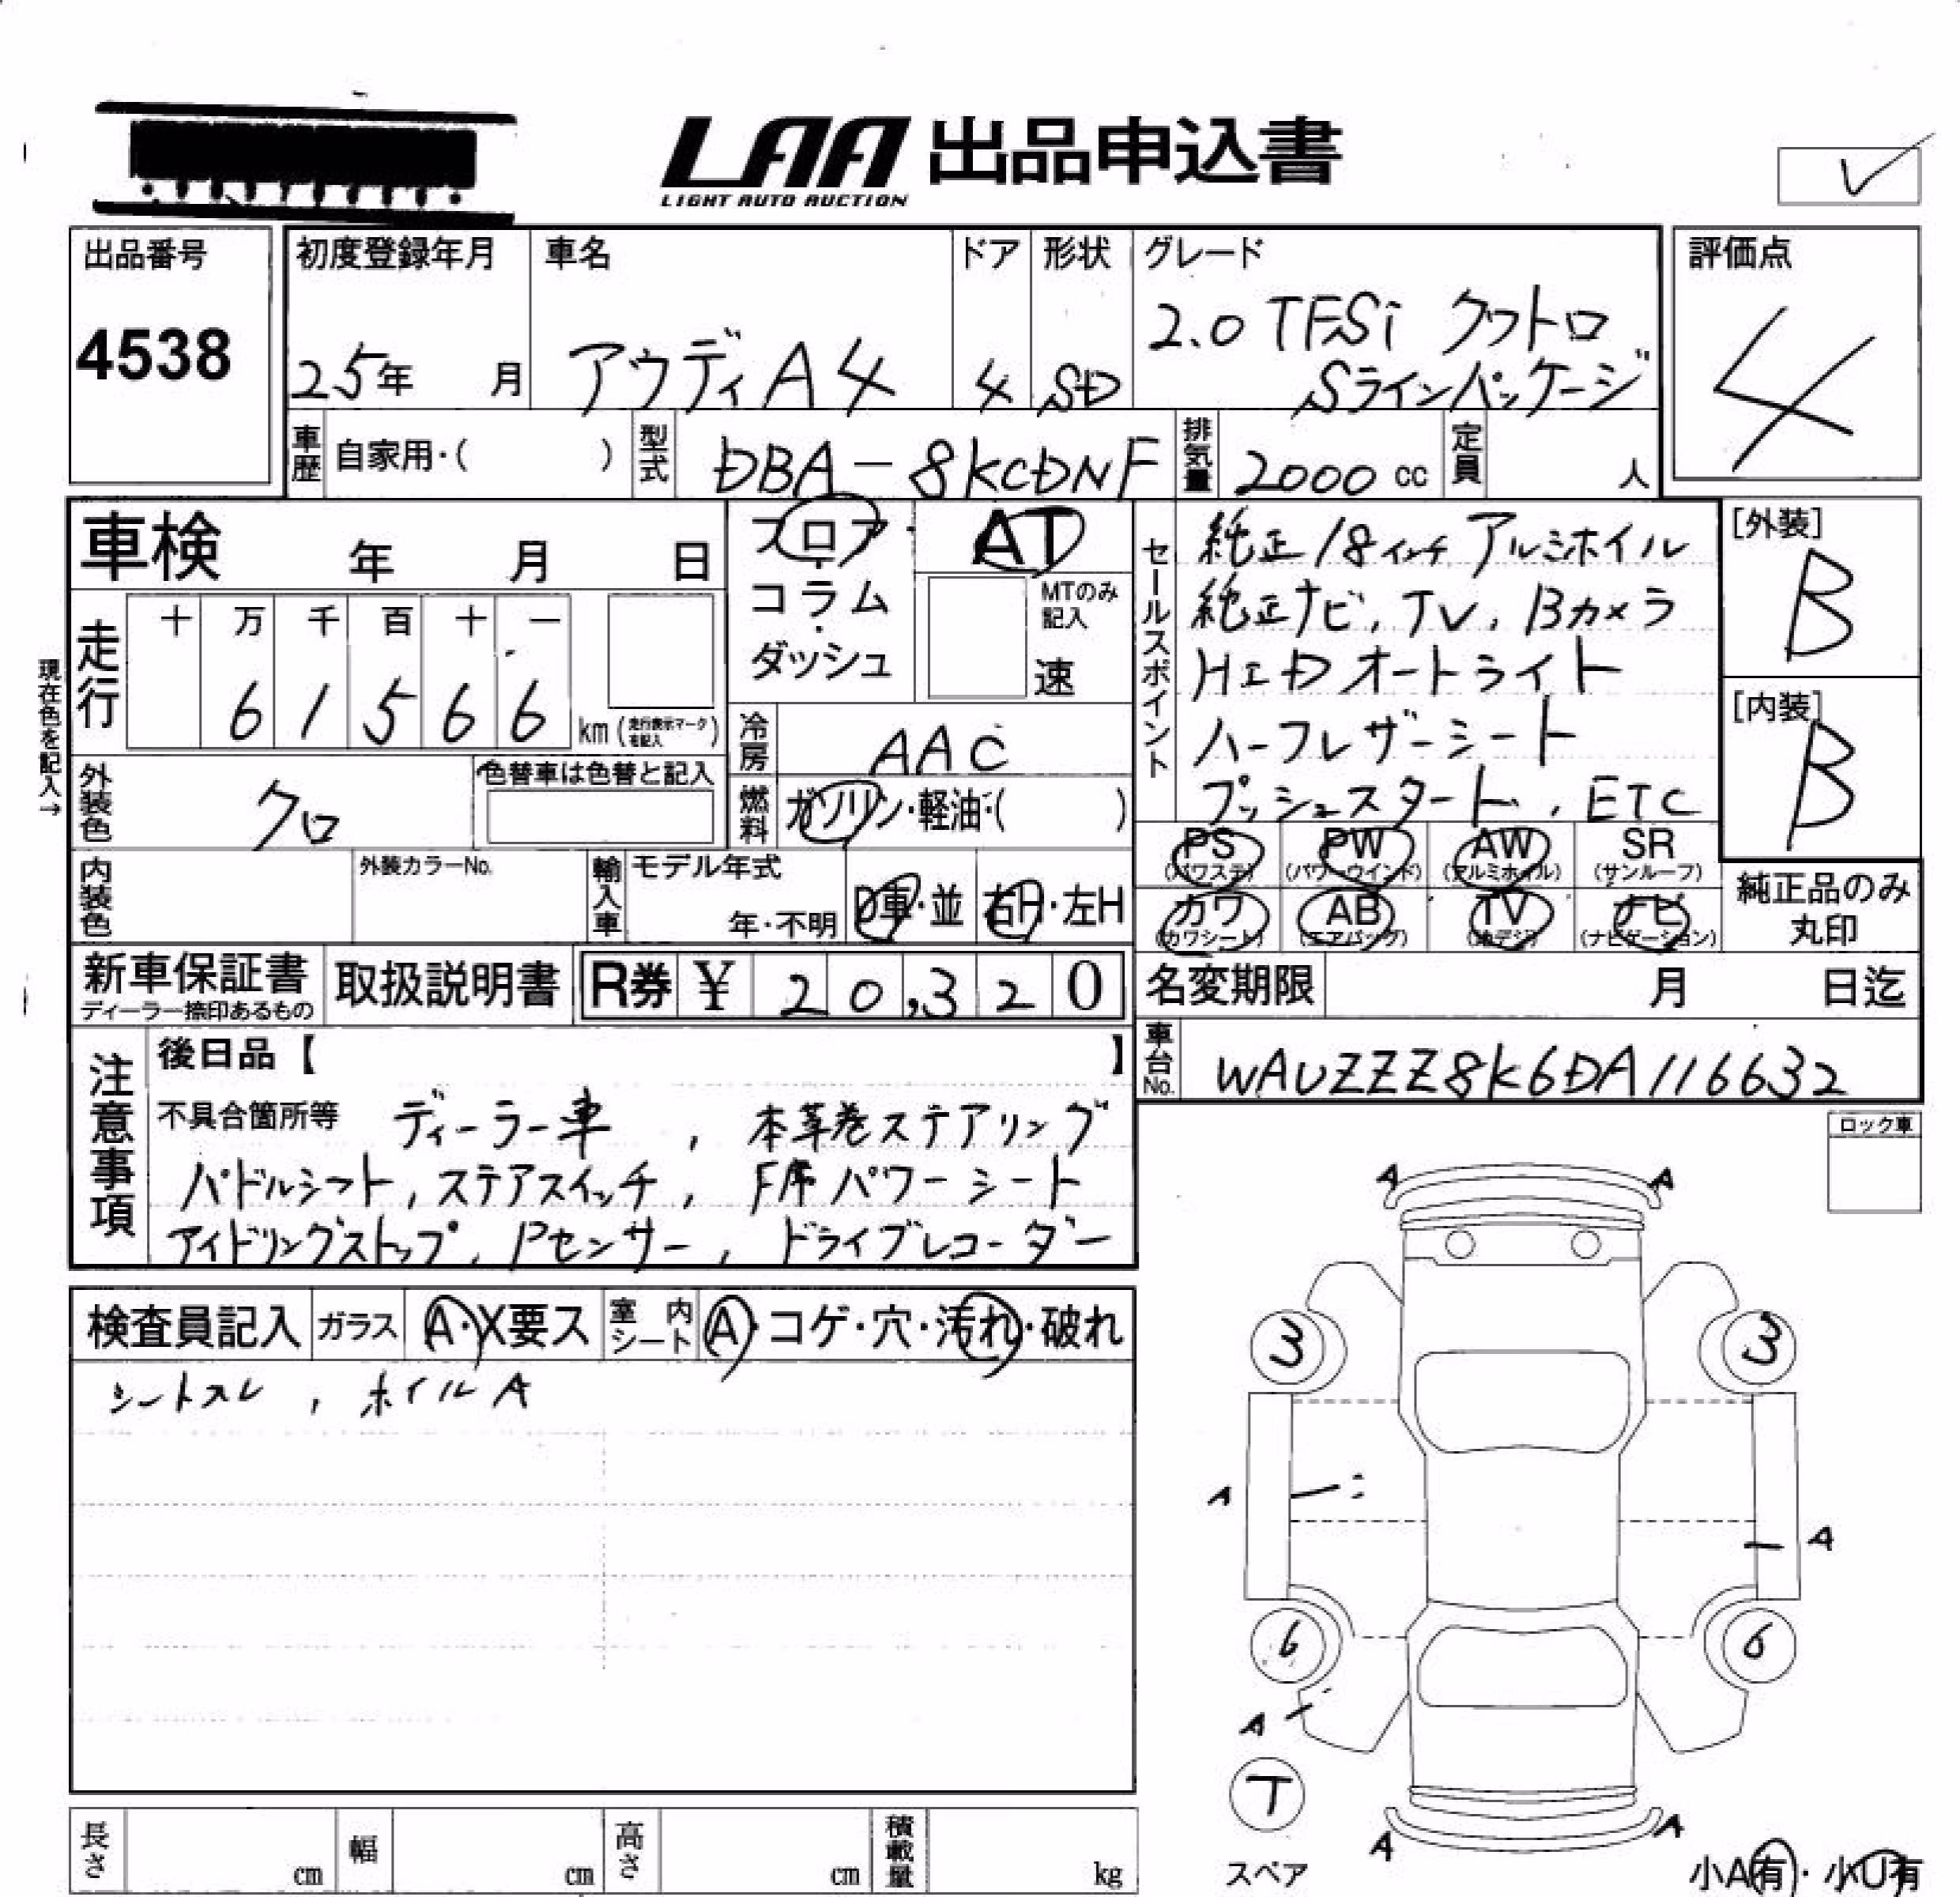 LAA 出品申込書
LIGHT AUTO AUCTION
出品番号
4538
初度登録年月
25年 月
車名
アウディA4
ドア
4
形状
SD
グレード
2.0 TFSi クワトロ
Sラインパッケージ
評価点
4
車歴 自家用・( )
型式 DBA-8KCDNF
排気量 2000 cc
定員 人
車検 年 月 日
フロア・
コラム・
ダッシュ
AT
MTのみ
記入
速
現在色を記入→
走行
十 万 千 百 十 一
6 1 5 6 6
km (走行表示マークを記入)
冷房 AAC
外装色 クロ
色替車は色替と記入
燃料 ガソリン・軽油・( )
内装色
外装カラーNo.
輸入車
モデル年式
年・不明
D車・並
右H・左H
セールスポイント
純正18インチ アルミホイル
純正ナビ, TV, Bカメラ
HID オートライト
ハーフレザーシート
プッシュスタート, ETC
[外装]
B
[内装]
B
PS PW AW SR
(パワステ) (パワーウインド) (アルミホイル) (サンルーフ)
カワ AB TV ナビ
(カワシート) (エアバッグ) (地デジ) (ナビゲーション)
純正品のみ
丸印
新車保証書
ディーラー捺印あるもの
取扱説明書
R券 ¥ 20,320
名変期限 月 日迄
車台No. WAUZZZ8K6DA116632
注意事項
後日品【 】
不具合箇所等 ディーラー車, 本革巻ステアリング
パドルシフト, ステアスイッチ, F席パワーシート
アイドリングストップ, Pセンサー, ドライブレコーダー
ロック車
検査員記入
ガラス A・X要ス
室内シート A・コゲ・穴・汚れ・破れ
シートスレ, ホイルA
A A
3 3
A
A
6 6
A
T
スペア
A A
小A有・小U有
長さ cm
幅 cm
高さ cm
積載量 kg